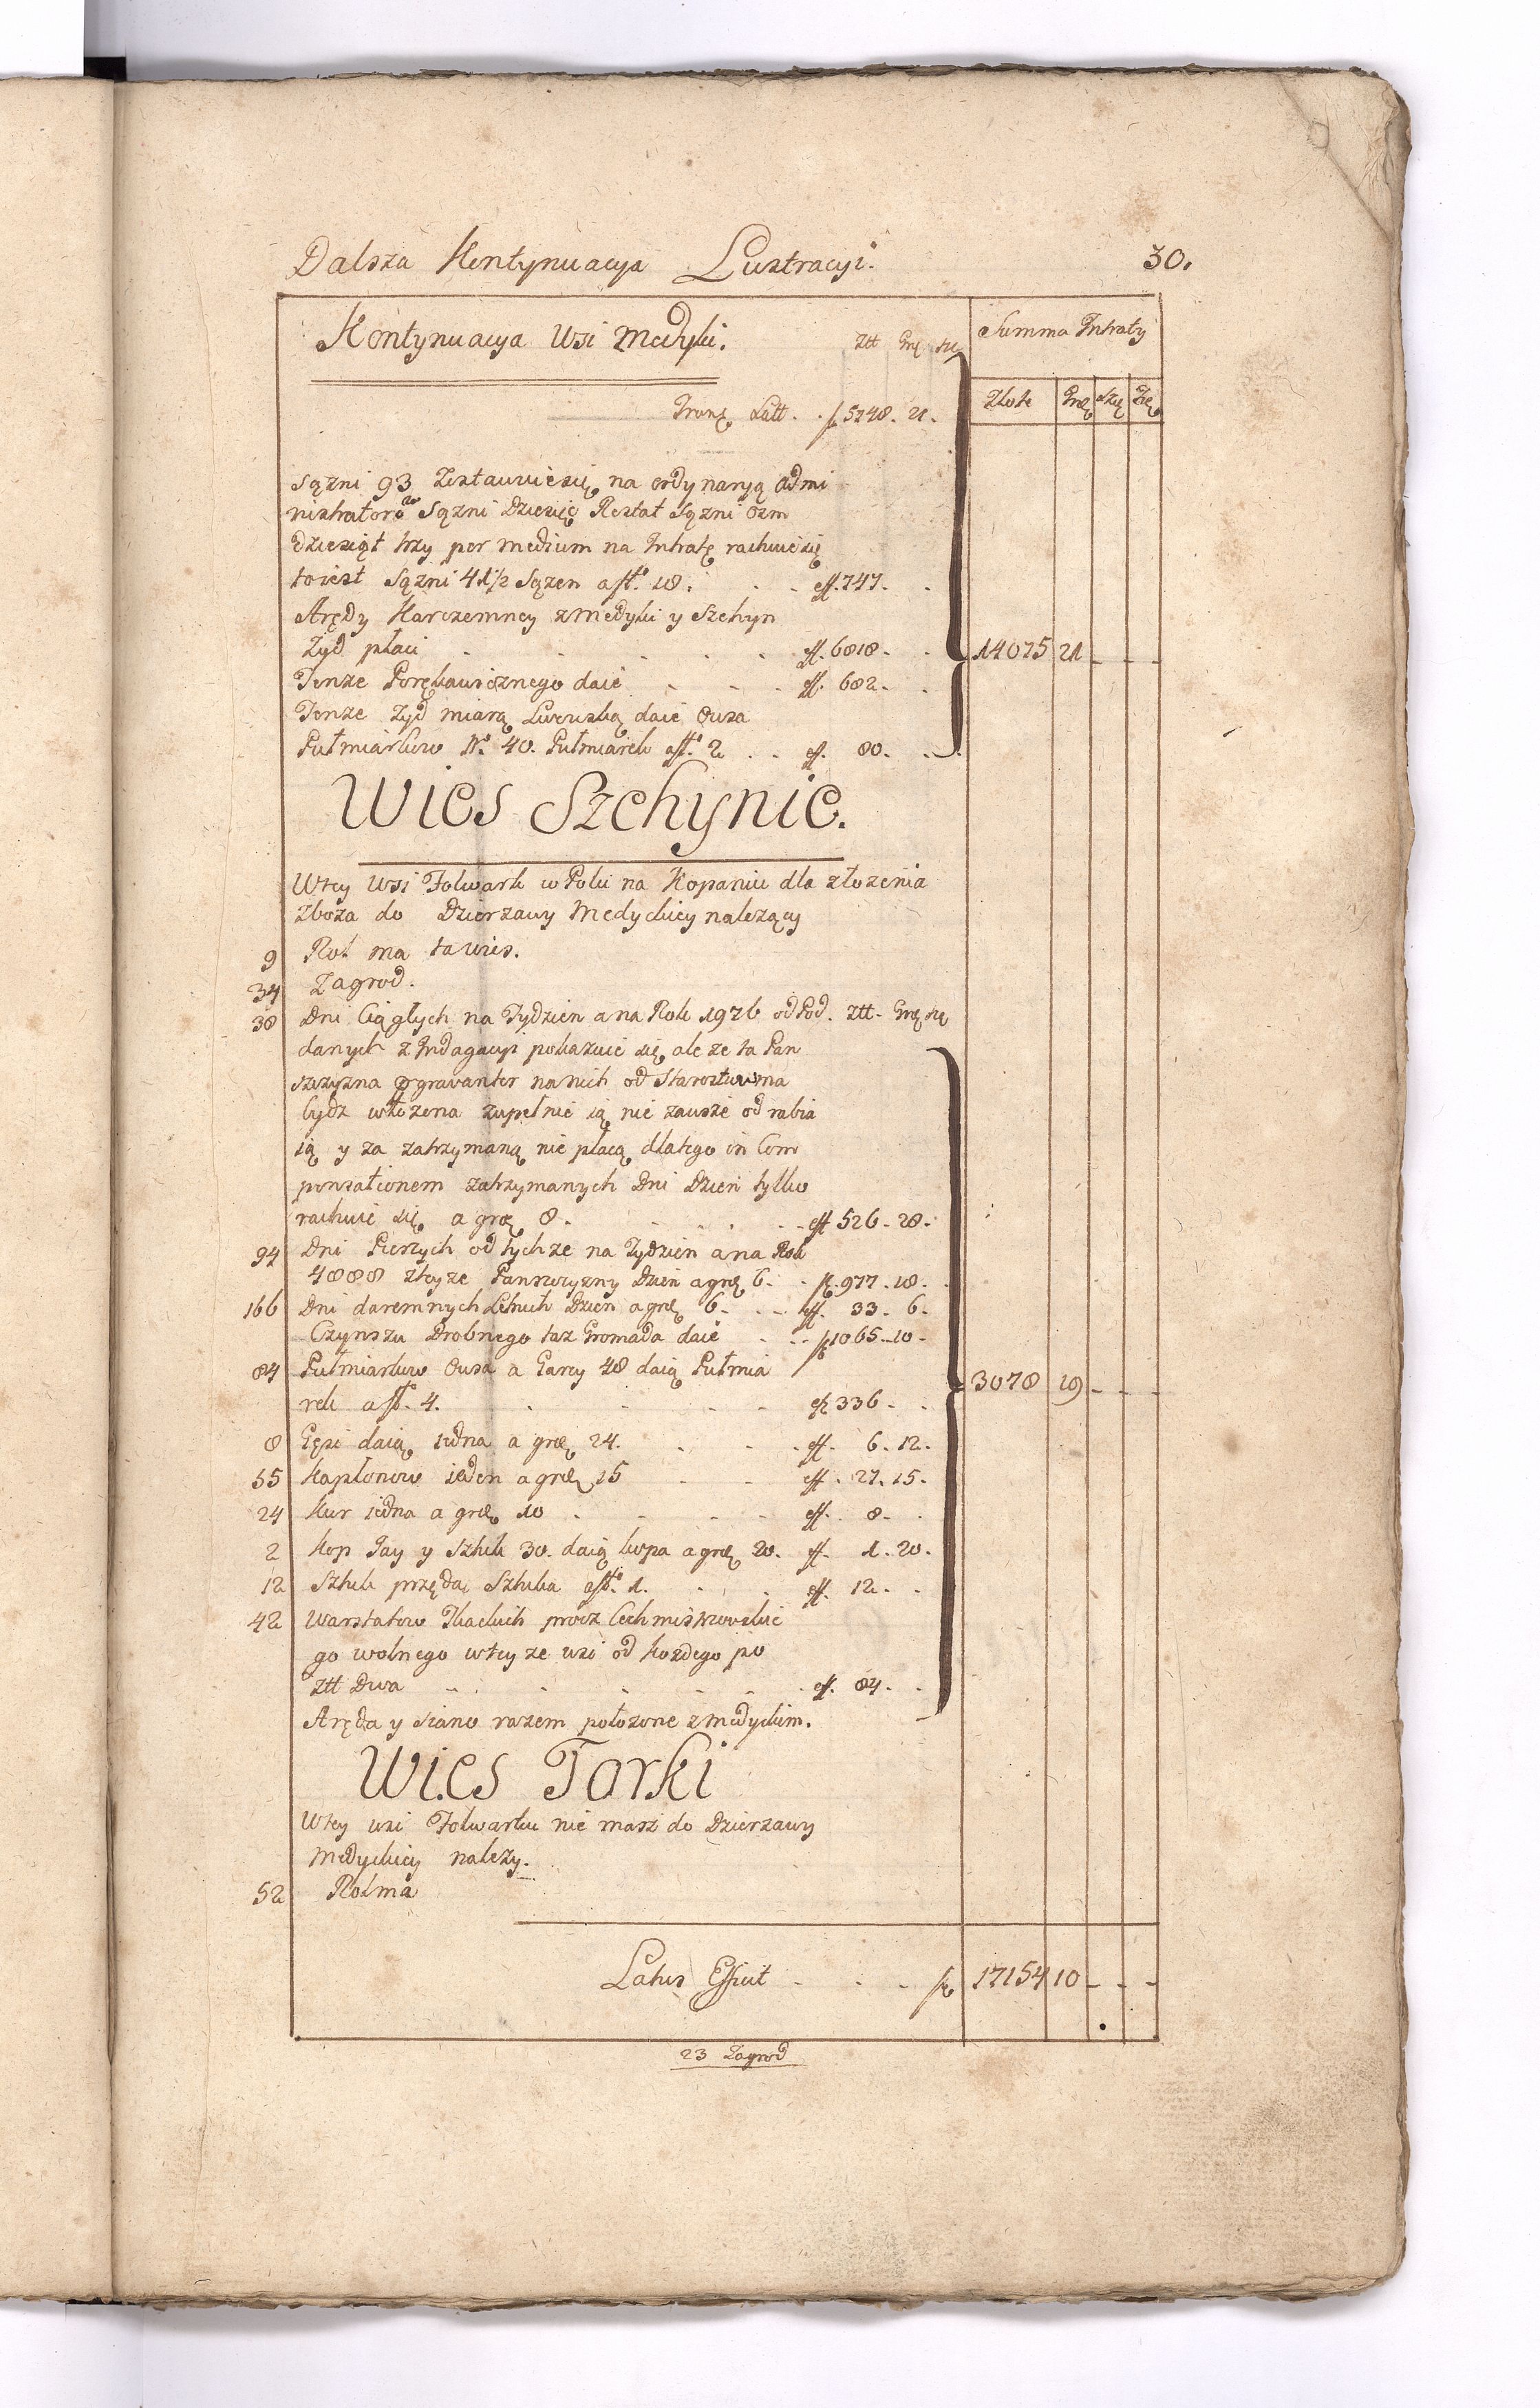 Dalsza Kontynuacya Lustracyi.
30.
Kontynuacya Wsi Medyki.
Ztt Grę Szę
Summa Intraty
Złote Grę Szę
Tranę Latt. . f. 5748. 21.
Sązni 93 Zestawuie się na ordynaryą Admi
nistratora Sązni Dziesię Restat Sązni Ozm
dziesiąt trzy per medium na Intratę rachuie się
to iest Sązni 41 1/2 Sązen a ff. 18. . . eff. 747. .
Arędy Karczemney z Medyki y Szchyn
Zyd płaci . . . . . eff. 6818. .
14075 21 - - -
Tenze Porękawicznego daie . . . eff. 682. .
Tenze Zyd miarą Lwowską daie Owsa
Pułmiarkow No. 40. Pułmiarek a ff. 2 . . eff. 80. .
Wies Szchynie.
W tey Wsi Folwark w Polu na Kopaniu dla złozenia
Zboza do Dzierzawy Medyckiey nalezący
9 Rol ma ta wies.
34 Zagrod.
38 Dni Ciągłych na Tydzien a na Rok 1976 od Pod. Ztt - Grę szę
danych z Indagacyi pokazuie się, ale ze ta Pan
szczyzna ggravanter na nich od Starostwa ma
bydz włozena zupełnie ią nie zawsze od rabia
ią y za zatrzymaną nie płacą dlatego in Com
pensationem zatrzymanych Dni Dzien tylko
rachuie się a grę 8. . . . . eff 526 - 28.
94 Dni Pieszych od tychze na Tydzien a na Rok
4888 teyze Panszczyzny Dzien a grę 6. . f. 977. 18.
166 Dni daremnych Letnich Dzien a grę 6. . . eff. 33. 6.
Czynszu Drobnego taz Gromada daie . . . f 1065. 10.
84 Pułmiarkow Owsa a Garcy 48 daią Pułmia
rek a ff. 4. . . . . eff 336. .
3078 19 - - -
8 Gęsi daią iedna a grę 24. . . . eff. 6. 12.
55 Kapłonow ieden a grę 15 . . eff. 27. 15.
24 Kur iedna a grę 10 . . . . eff. 8. .
2 Kop Jay y Sztuk 30. daią kopa a grę 20. eff. 1. 20.
12 Sztuk przędą Sztuka a ff. 1. . . . eff. 12. .
42 Warstatow Tkackich procz Cechmistrzowskie
go wolnego w teyze wsi od kozdego po
Ztt Dwa . . . . . . eff. 84. .
Aręda y siano razem połozone z Medyckim.
Wies Torki
W tey wsi Folwarku nie masz do Dzierzawy
Medyckiey nalezy.
52 Rol ma
Latus Efficit . . . f 17154 10 - - -
23 Zagrod